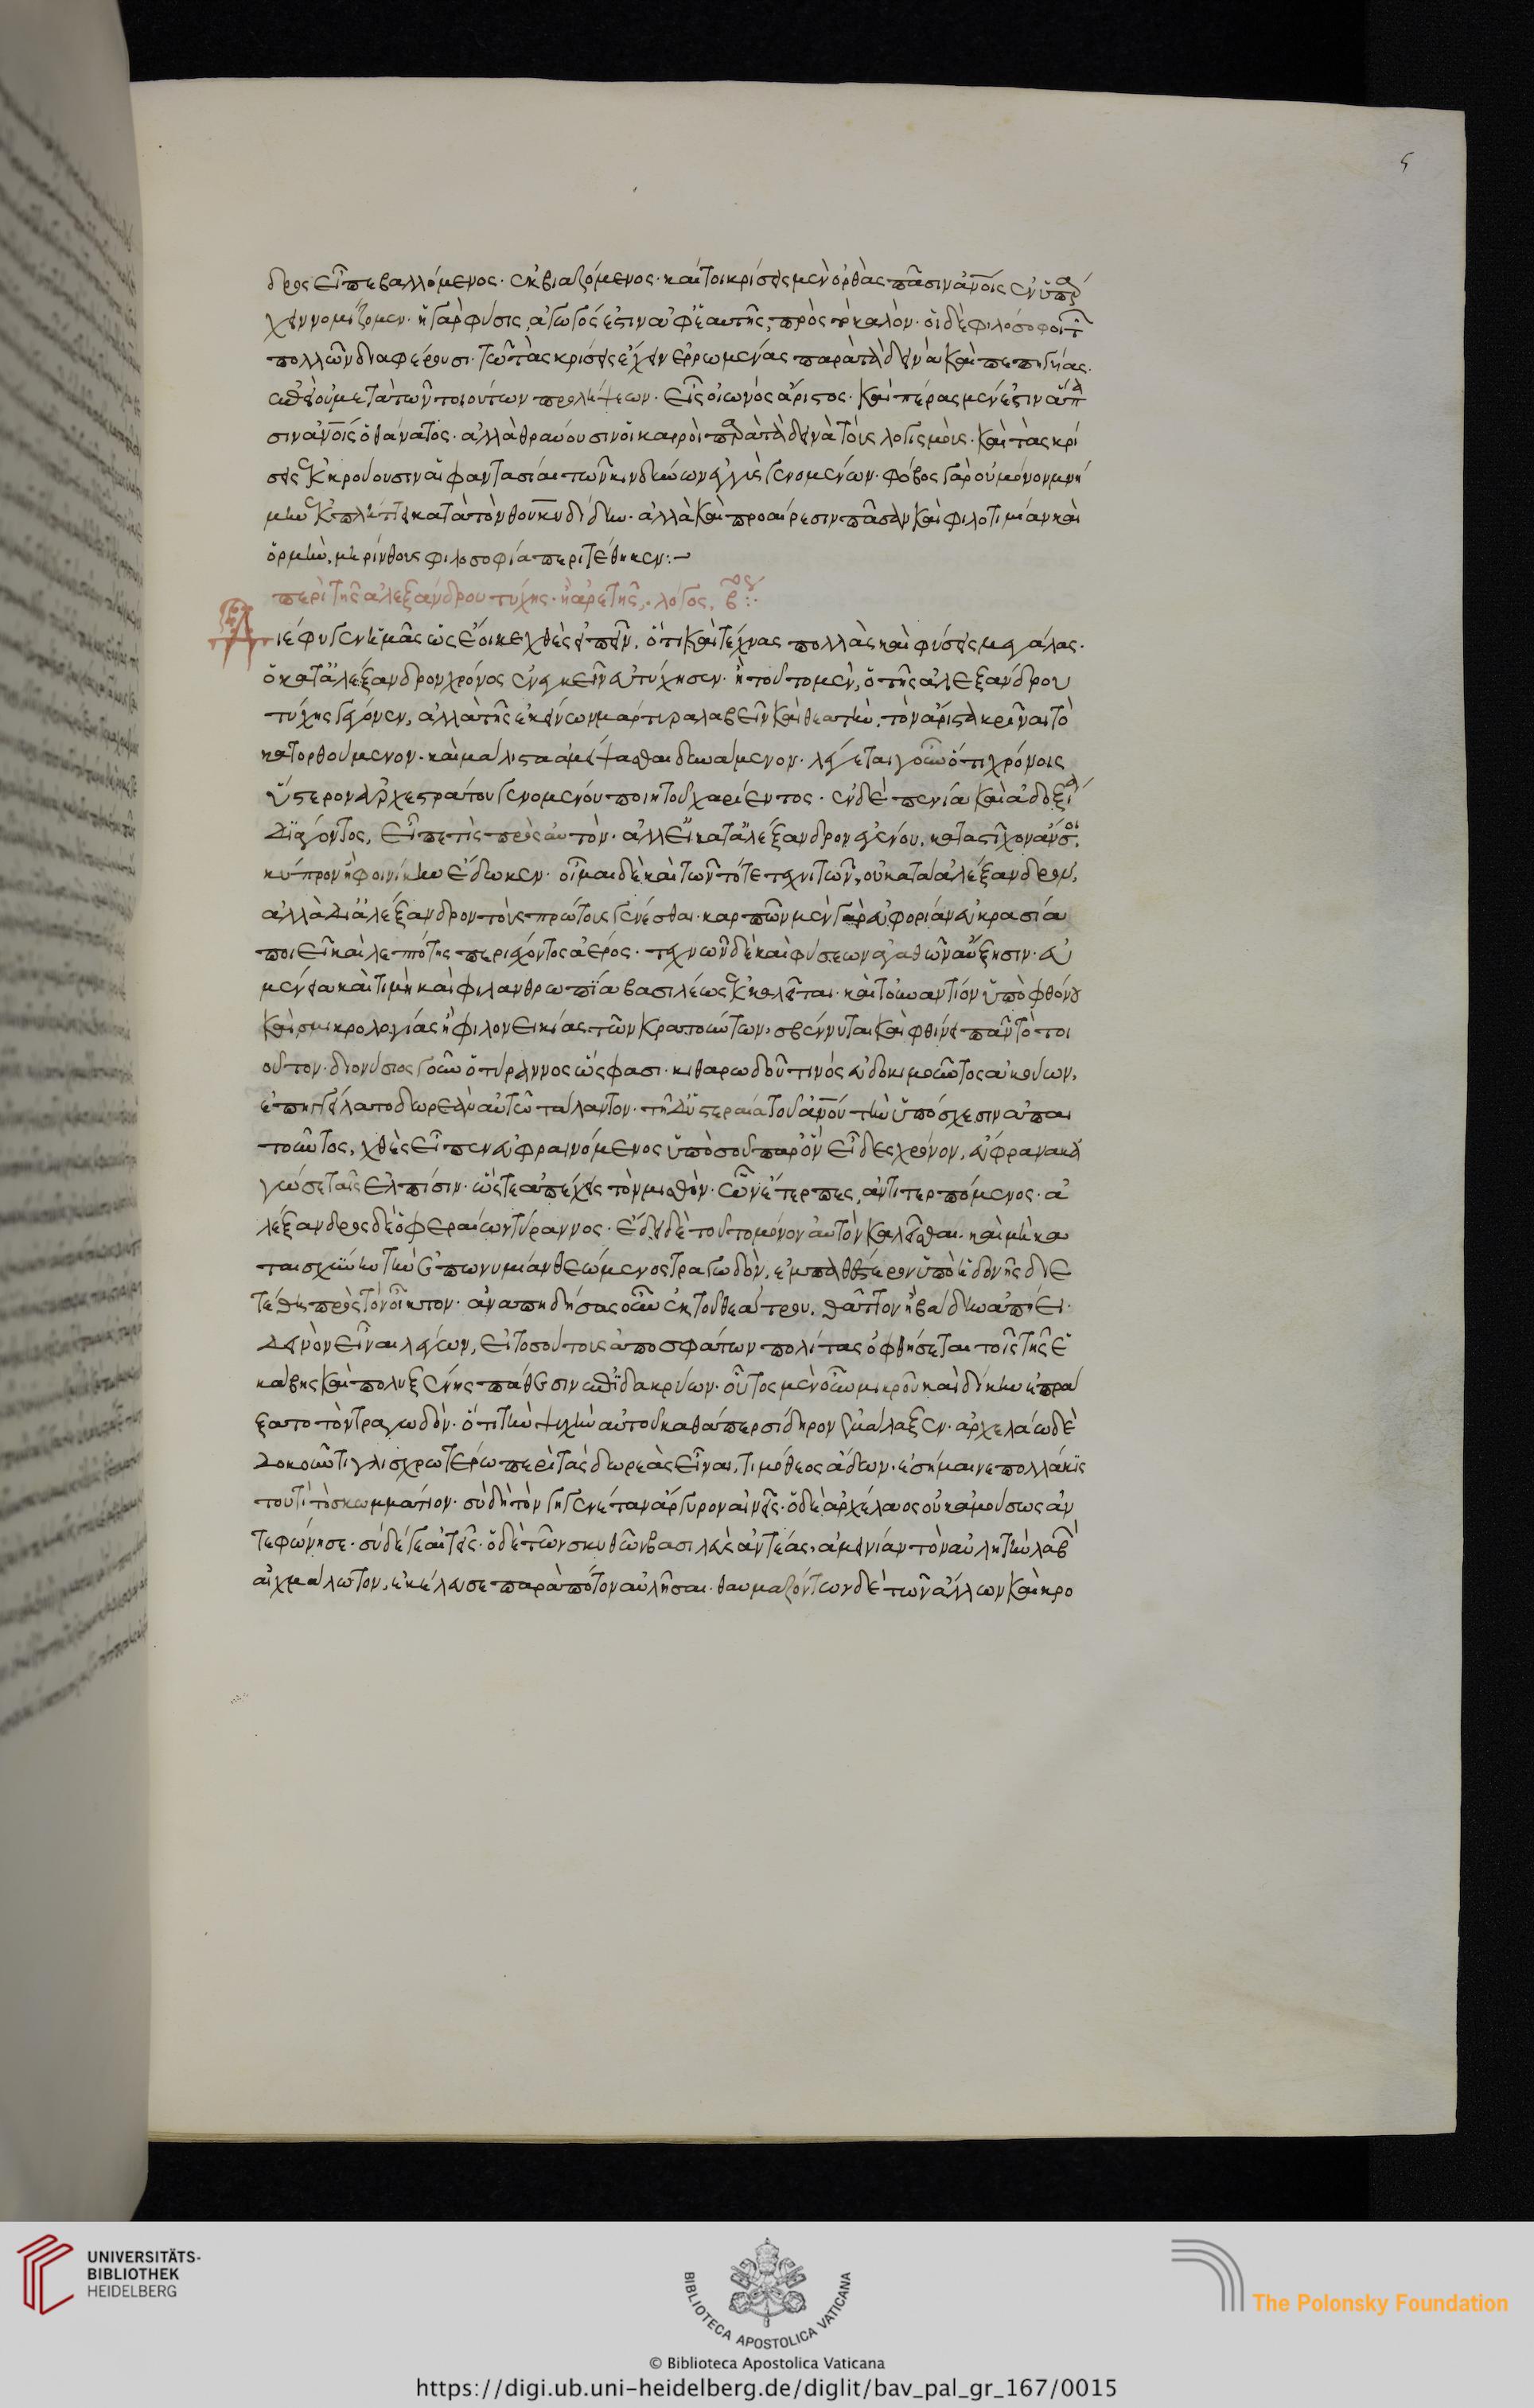 5
δρος εἶπε βαλλόμενος· ἐκβιαζόμενος· καίτοι κρίσεις μὲν ὀρθὰς πᾶσιν ἀν̅οις ἐνϋπάρ
χειν νομίζομεν· ἡ γὰρ φύσις, ἀγωγός ἐστιν ἀφ' ἑαυτῆς, πρὸς τὸ καλόν· οἱ δὲ φιλόσοφοι τῶν
πολλῶν διαφέρουσι· τῶ τὰς κρίσεις ἔχειν ἐρρωμένας παρὰ τὰ δεινὰ καὶ πεπηγυίας·
οὐ μετὰ τῶν τοιούτων προλήψεων· εἷς οἰωνός ἄριστος· καὶ πέρας μέν ἐστιν ἅπα
σιν ἀν̅οις ὁ θάνατος· ἀλλὰ θραύουσιν οἱ καιροὶ παρὰ τὰ δεινὰ τοὺς λογισμούς· καὶ τὰς κρί
σεις ἐκκρούουσιν αἱ φαντασίαι τῶν κινδύνων ἐγγὺς γενομένων· φόβος γὰρ οὐ μόνον μνή
μην ἐκπλήττει κατὰ τὸν θουκυδίδην· ἀλλὰ καὶ προαίρεσιν πᾶσαν καὶ φιλοτιμίαν καὶ
ὁρμήν, μηρίνθους φιλοσοφία περιτέθηκεν:
περὶ τῆς ἀλεξάνδρου τύχης· ἢ ἀρετῆς, λόγος, β̅ος:
Διέφυγεν ἡμᾶς ὡς ἔοικε χθὲς εἰπεῖν, ὅτι καὶ τέχνας πολλὰς καὶ φύσεις μεγάλας·
ὁ κατ' ἀλέξανδρον χρόνος ἐνεγκεῖν εὐτύχησεν· ἢ τοῦτο μὲν, ὁ τῆς ἀλεξάνδρου
τύχης γέγονεν, ἀλλὰ τῆς ἐκείνων μάρτυρα λαβεῖν καὶ θεατὴν, τὸν ἄριστα κρῖναι τὸ
κατορθούμενον· καὶ μάλιστα ἀμείψασθαι δυνάμενον· λέγεται γοῦν ὅτι χρόνοις
ὕστερον ἀρχεστράτου γενομένου ποιητοῦ χαρίεντος· ἐν δὲ πενία καὶ ἀδοξία
διάγοντος, εἶπε τὶς πρὸς αὐτὸν· ἀλλ' εἰ κατ' ἀλέξανδρον ἐγένου, κατὰ στίχον ἄν σοι
κύπρον ἢ φοινίκην ἔδωκεν· οἶμαι δὲ καὶ τῶν τότε τεχνιτῶν, οὐ κατὰ ἀλέξανδρον,
ἀλλὰ δι' ἀλέξανδρον τοὺς πρώτους γενέσθαι· καρπῶν μὲν γὰρ εὐφορίαν εὐκρασία
ποιεῖ καὶ λεπτότης περιέχοντος ἀέρος· τεχνῶν δὲ καὶ φύσεων ἀγαθῶν αὔξησιν· εὐ
μένεια καὶ τιμὴ καὶ φιλανθρωπία βασιλέως ἐκκαλεῖται· καὶ τοὐναντίον ὑπὸ φθόνου
καὶ σμικρολογίας ἢ φιλονεικίας τῶν κρατούντων, σβέννυται καὶ φθίνει πᾶν τὸ τοι
οῦτον· διονύσιος γοῦν ὁ τύραννος ὥς φασι· κιθαρωδοῦ τινός εὐδοκιμοῦντος ἀκούων,
ἐπηγγείλατο δωρεὰν αὐτῶ τάλαντον· τῆ δ' ὑστεραία τοῦ ἀν̅ου τὴν ὑπόσχεσιν ἀπαι
τοῦντος, χθὲς εἶπεν εὐφραινόμενος ὑπὸ σοῦ παρ' ὃν εἶδες χρόνον, εὔφρανα κἀ
γώ σε ταῖς ἐλπίσιν· ὥστε ἀπέχεις τὸν μισθὸν· ὧν ἔτερπες, ἀντιτερπόμενος· ἀ
λέξανδρος δὲ ὁ φεραίων τύραννος· ἔδει δὲ τοῦτο μόνον αὐτὸν καλεῖσθαι· καὶ μὴ κα
ταισχύνειν τὴν ἐπωνυμίαν θεώμενος τραγωδὸν, ὑπὸ ἡδονῆς διε
τέθη πρὸς τὸν οἶκτον· ἀναπηδήσας οὖν ἐκ τοῦ θεάτρου, θᾶττον ἢ βάδην ἀπήει·
δεινὸν εἶναι λέγων, εἰ τοσούτους ἀποσφάττων πολίτας ὀφθήσεται τοῖς τῆς ἑ
κάβης καὶ πολυξένης πάθεσιν ἐπιδακρύων· οὗτος μὲν οὖν μικροῦ καὶ δίκην ἐπρά
ξατο τὸν τραγωδόν· ὅτι τὴν ψυχὴν αὐτοῦ καθάπερ σίδηρον ἐμάλαξεν· ἀρχελάω δὲ
δοκοῦντι γλισχροτέρω περὶ τὰς δωρεὰς εἶναι, τιμόθεος ἄδων, ἐσήμαινε πολλάκις
τουτὶ τὸ σκωμμάτιον· σὺ δὴ τὸν γηγενέταν ἄργυρον αἰνεῖς· ὁ δὲ ἀρχέλαος οὐκ ἀμούσως ἀν
τεφώνησε· σὺ δέ γε αἰτεῖς· ὁ δὲ τῶν σκυθῶν βασιλεὺς ἀντέας, ἀμεινίαν τὸν αὐλητὴν λαβὼν
αἰχμάλωτον, ἐκέλευσε παρὰ πότον αὐλῆσαι· θαυμαζόντων δὲ τῶν ἄλλων καὶ κρο
UNIVERSITÄTS-
BIBLIOTHEK
HEIDELBERG
BIBLIOTECA APOSTOLICA VATICANA
The Polonsky Foundation
© Biblioteca Apostolica Vaticana
https://digi.ub.uni-heidelberg.de/diglit/bav_pal_gr_167/0015